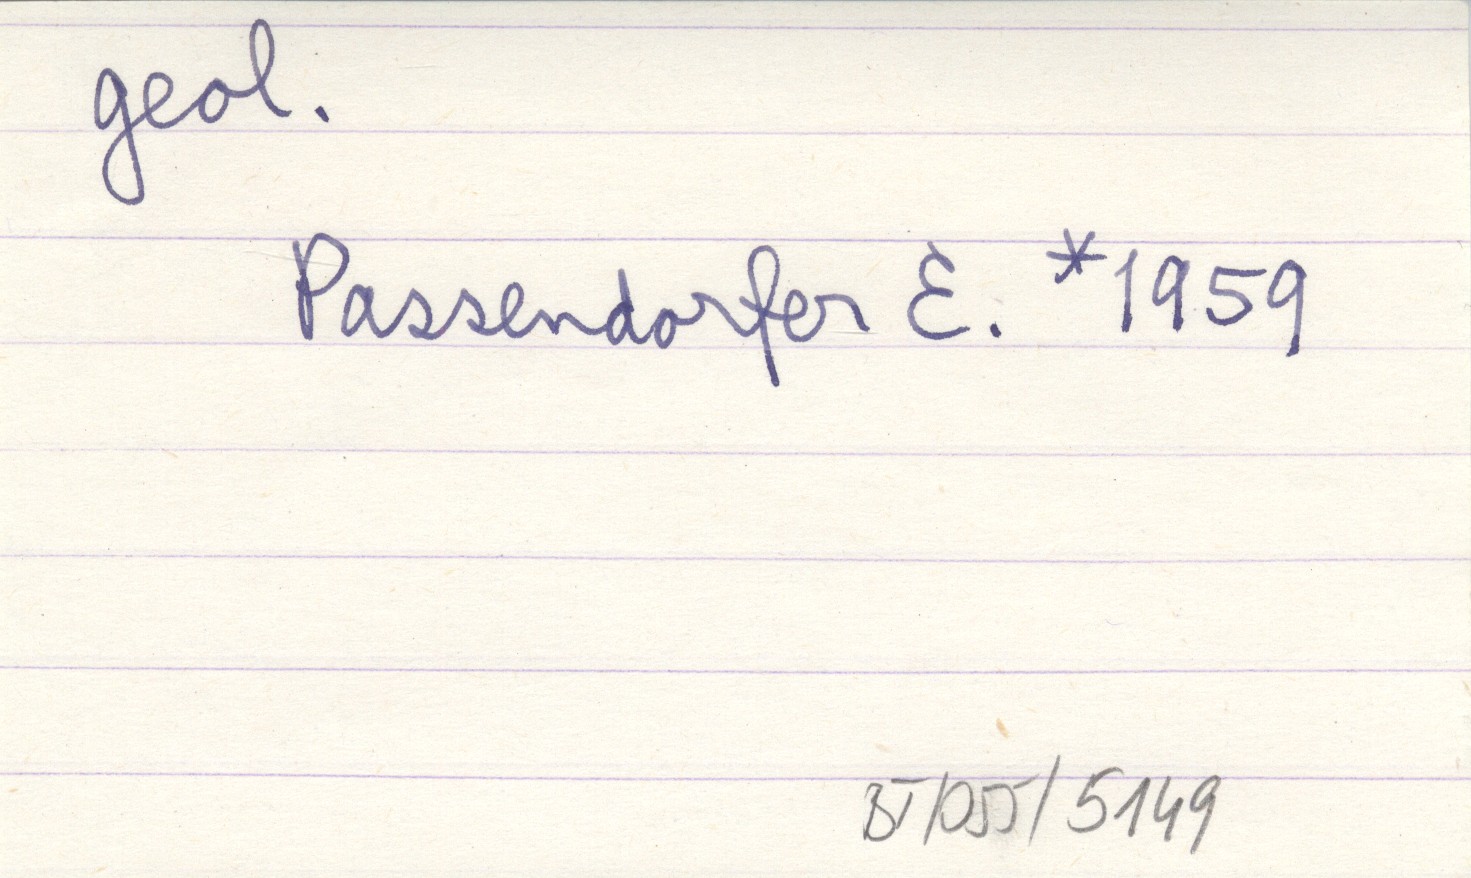 geol.
Passendorfer E. *1959
BT/055/5149